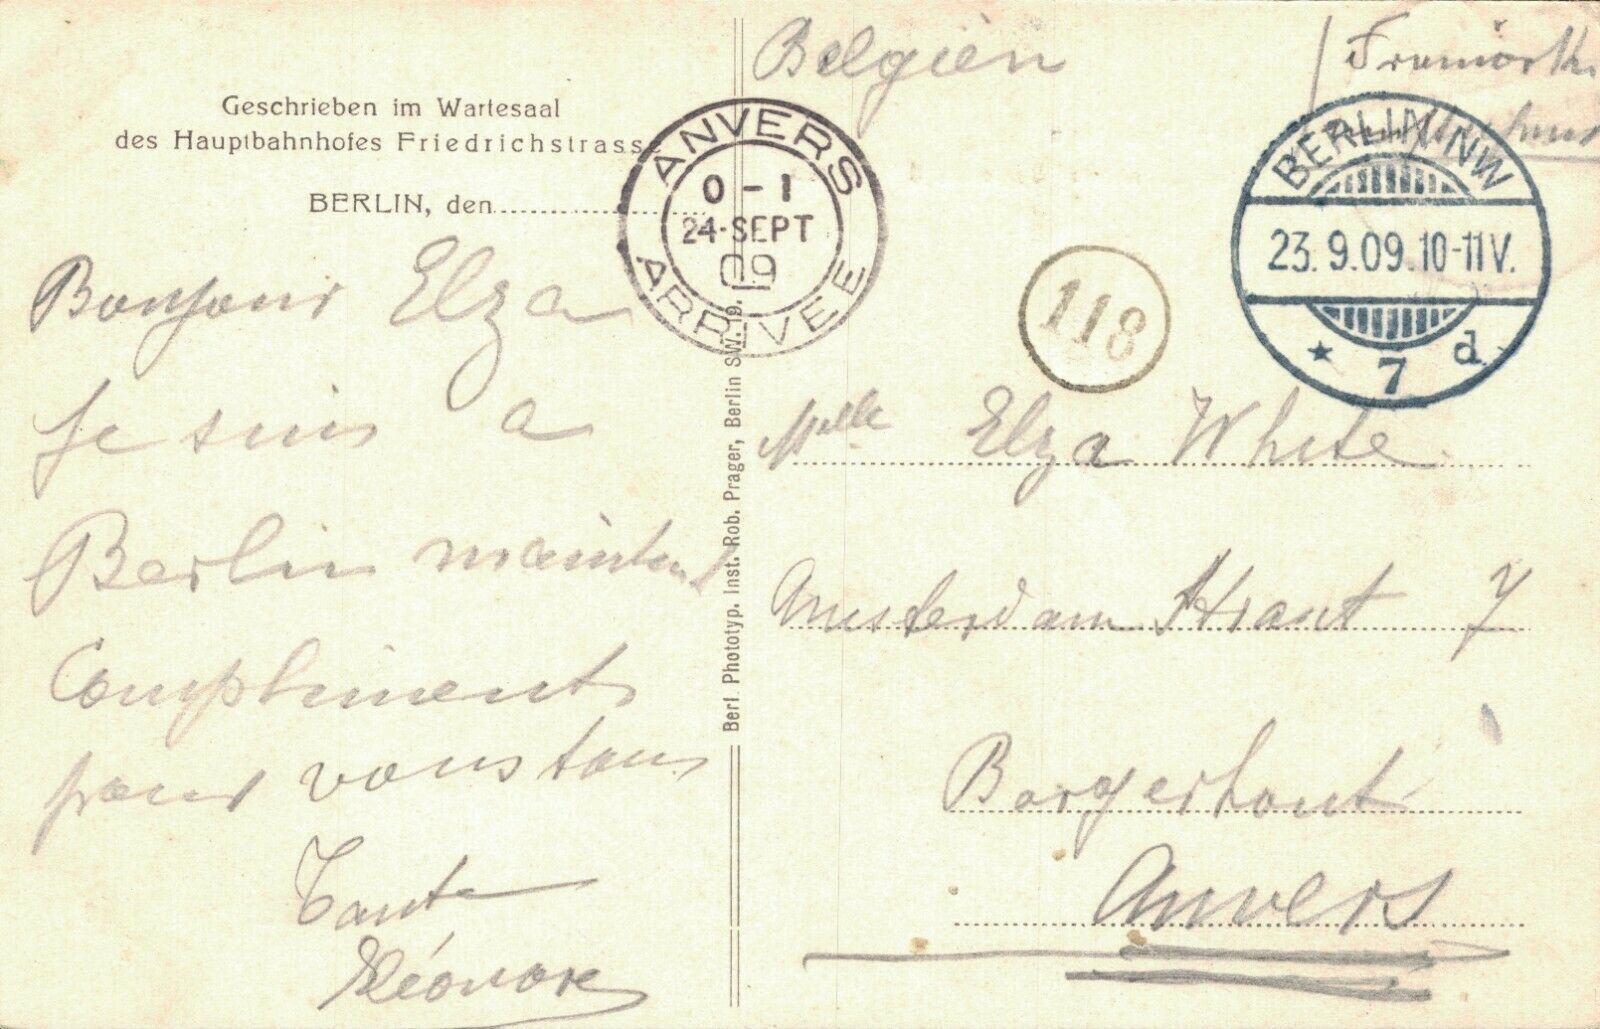 Geschrieben im Wartesaal
des Hauptbahnhofes Friedrichstrasse
BERLIN, den
Bonjour Elza
Je suis a
Berlin maintenant
Compliments
pour vous tous
Tante
Eléonore
Berl. Phototyp. Inst. Rob. Prager, Berlin SW. 19.
Belgien
ANVERS
0-1
24·SEPT
09
ARRIVEE
118
BERLIN NW
23.9.09.10-11V.
* 7 d.
Melle Elza White
Amsterdam Straat 7
Borgerhout
Anvers